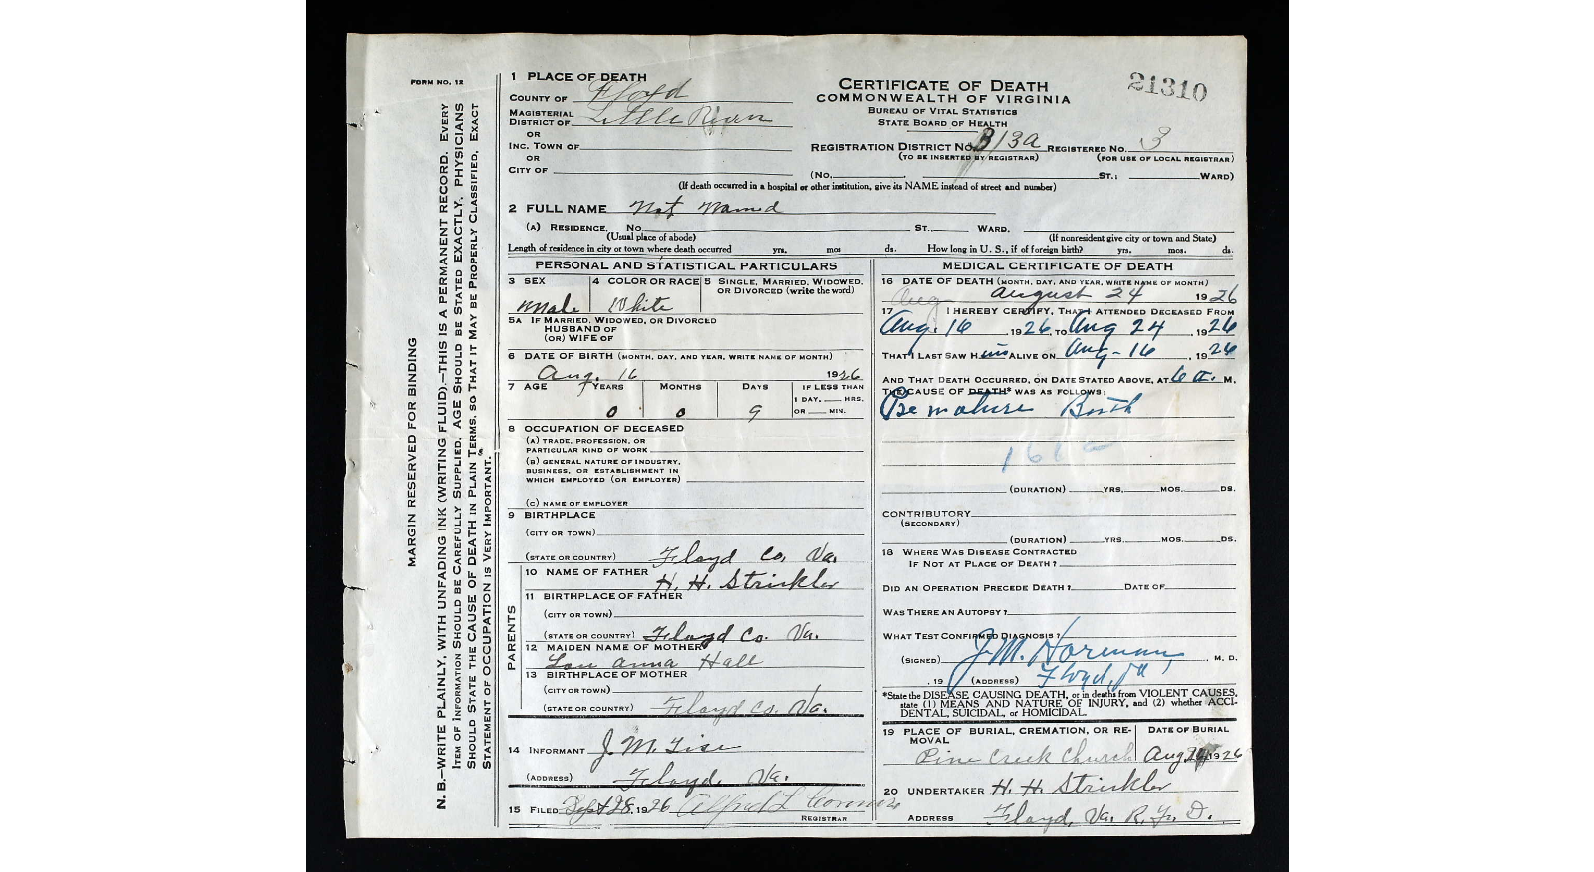 FORM NO. 12
MARGIN RESERVED FOR BINDING
N. B.—WRITE PLAINLY, WITH UNFADING INK (WRITING FLUID).—THIS IS A PERMANENT RECORD. EVERY
ITEM OF INFORMATION SHOULD BE CAREFULLY SUPPLIED. AGE SHOULD BE STATED EXACTLY. PHYSICIANS
SHOULD STATE THE CAUSE OF DEATH IN PLAIN TERMS, SO THAT IT MAY BE PROPERLY CLASSIFIED. EXACT
STATEMENT OF OCCUPATION IS VERY IMPORTANT.
1 PLACE OF DEATH
COUNTY OF Floyd
MAGISTERIAL
DISTRICT OF Little River
OR
INC. TOWN OF
OR
CITY OF
CERTIFICATE OF DEATH
COMMONWEALTH OF VIRGINIA
BUREAU OF VITAL STATISTICS
STATE BOARD OF HEALTH
21310
REGISTRATION DISTRICT No. 313A REGISTERED No. 3
(TO BE INSERTED BY REGISTRAR) (FOR USE OF LOCAL REGISTRAR)
(No. ST.; WARD)
(If death occurred in a hospital or other institution, give its NAME instead of street and number)
2 FULL NAME Not Named
(A) RESIDENCE. No. ST. WARD.
(Usual place of abode) (If nonresident give city or town and State)
Length of residence in city or town where death occurred yrs. mos ds. How long in U. S., if of foreign birth? yrs. mos. ds.
PERSONAL AND STATISTICAL PARTICULARS
3 SEX 4 COLOR OR RACE 5 SINGLE, MARRIED, WIDOWED, OR DIVORCED (write the word)
Male White
5A IF MARRIED, WIDOWED, OR DIVORCED
HUSBAND OF
(OR) WIFE OF
6 DATE OF BIRTH (MONTH, DAY, AND YEAR, WRITE NAME OF MONTH)
Aug. 16 1926
7 AGE YEARS MONTHS DAYS IF LESS THAN
1 DAY, HRS.
OR MIN.
0 0 9
8 OCCUPATION OF DECEASED
(A) TRADE, PROFESSION, OR
PARTICULAR KIND OF WORK
(B) GENERAL NATURE OF INDUSTRY,
BUSINESS, OR ESTABLISHMENT IN
WHICH EMPLOYED (OR EMPLOYER)
(C) NAME OF EMPLOYER
9 BIRTHPLACE
(CITY OR TOWN)
(STATE OR COUNTRY) Floyd Co. Va.
PARENTS
10 NAME OF FATHER H. H. Strickler
11 BIRTHPLACE OF FATHER
(CITY OR TOWN)
(STATE OR COUNTRY) Floyd Co. Va.
12 MAIDEN NAME OF MOTHER
Lou Anna Hall
13 BIRTHPLACE OF MOTHER
(CITY OR TOWN)
(STATE OR COUNTRY) Floyd Co. Va.
14 INFORMANT J. M.
(ADDRESS) Floyd, Va.
15 FILED Sept 28, 1926 Alfred L
REGISTRAR
MEDICAL CERTIFICATE OF DEATH
16 DATE OF DEATH (MONTH, DAY, AND YEAR, WRITE NAME OF MONTH)
Aug August 24 1926
17 I HEREBY CERTIFY, THAT I ATTENDED DECEASED FROM
Aug. 16, 1926, TO Aug 24, 1926
THAT I LAST SAW H im ALIVE ON Aug-16, 1926
AND THAT DEATH OCCURRED, ON DATE STATED ABOVE, AT 6 a. M.
THE CAUSE OF DEATH* WAS AS FOLLOWS:
Premature Birth
161a
(DURATION) YRS. MOS. DS.
CONTRIBUTORY
(SECONDARY)
(DURATION) YRS. MOS. DS.
18 WHERE WAS DISEASE CONTRACTED
IF NOT AT PLACE OF DEATH?
DID AN OPERATION PRECEDE DEATH? DATE OF
WAS THERE AN AUTOPSY?
WHAT TEST CONFIRMED DIAGNOSIS?
(SIGNED) J. M. Harman, M. D.
, 19 (ADDRESS) Floyd, Va
*State the DISEASE CAUSING DEATH, or in deaths from VIOLENT CAUSES,
state (1) MEANS AND NATURE OF INJURY, and (2) whether ACCI-
DENTAL, SUICIDAL, or HOMICIDAL.
19 PLACE OF BURIAL, CREMATION, OR RE-
MOVAL DATE OF BURIAL
Pine Creek Church Aug 1926
20 UNDERTAKER H. H. Strickler
ADDRESS Floyd, Va. R. F. D.